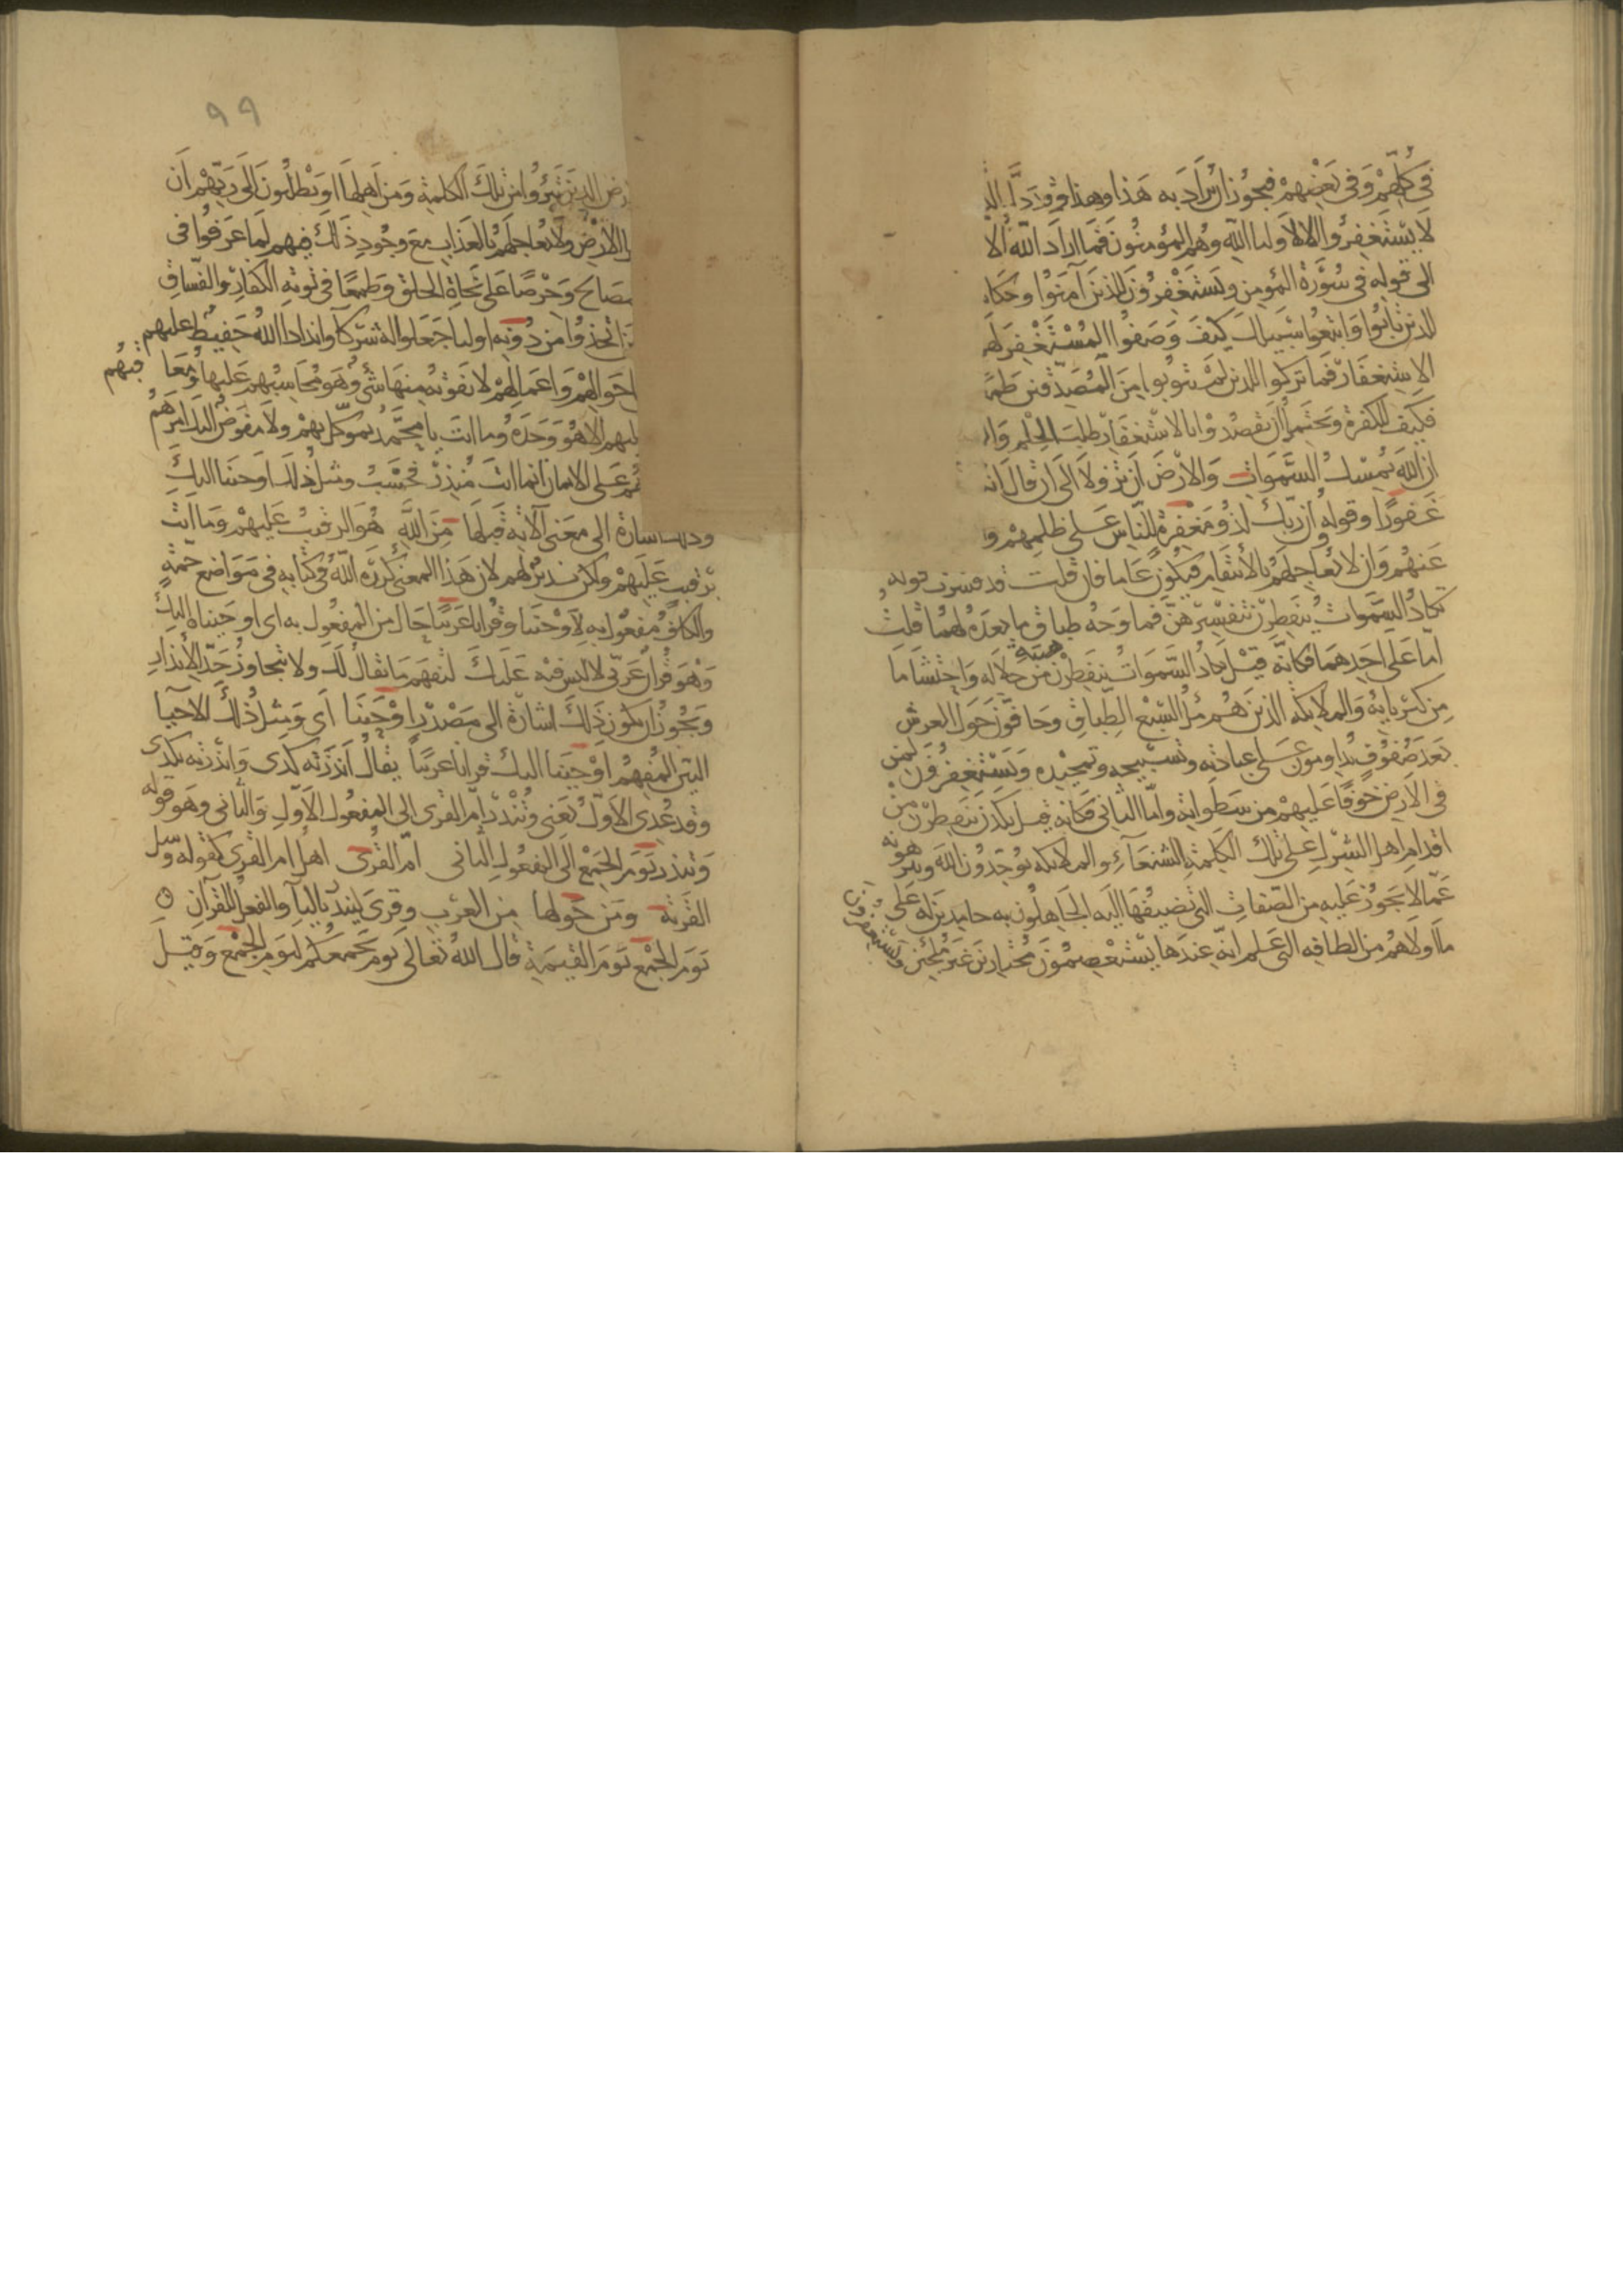 في كلهم وفي بعضهم فيجوز ان يراد به هذا وهذا وقد دل الد
لا يستغفروا الا لاوليا الله وهم المؤمنون فما اراد الله الا
الى قوله في سورة المؤمن ويستغفرون للذين آمنوا وحكا
للذين تابوا واتبعوا سبيلك كيف وصفوا المستغفر له
الاستغفار فما تركوا للذين لم يتوبوا من المصدقين طم
فكيف للكفرة ويحتمل ان يقصدوا بالاستغفار طلب الحلم وال
ان الله يمسك السموات والارض ان تزولا الى ان قال انه
غفورا وقوله ان ربك لذو مغفرة للناس على ظلمهم و
عنهم وان لا يعاجلهم بالانتقام فيكون عاما فان قلت قد فسرت قوله
تكاد السموات يتفطرن تفسيرين فما وجه طباق ما بعده لهما قلت
اما على احدهما فكانه قيل تكاد السموات يتفطرن هيبة من جلاله واحتشاما
من كبريائه والملائكة الذين هم ملأ السبع الطباق وحافون حول العرش
بعد صفوف يداومون على عبادته وتسبيحه وتمجيده ويستغفرون لمن
في الارض خوفا عليهم من سطواته واما الثاني فكانه قيل يكدن يتفطرن من
اقدام اهل الشرك على تلك الكلمة الشنعاء والملائكة يوحدون الله وينزهونه
عما لا يجوز عليه من الصفات التي تضيفها اليه الجاهلون به حامدين له على
ما اولاهم من الطافه التي علم انه عندها يستعصمون مختارين غير ملجئين ويستغفرون
99
رض الذين تبرؤا من تلك الكلمة ومن اهلها او يطلبون الى ربهم ان
الارض ولا يعاجلهم بالعذاب مع وجود ذلك فيهم لما عرفوا في
مصالح وحرصا على نجاة الخلق وطمعا في توبة الكفار والفساق
اتخذوا من دونه اوليا جعلوا له شركآ واندادا الله حفيظ عليهم
احوالهم واعمالهم لا يفوته منها شئ وهو محاسبهم عليها ومعاقبهم
عليهم الا هو وحده وما انت يا محمد بموكل بهم ولا مفوض اليك امرهم
على الايمان انما انت منذر فحسب ومثل ذلك اوحينا اليك
وذلك اشارة الى معنى الآية قبلها من الله هو الرقيب عليهم وما انت
برقيب عليهم ولكن نذير لهم لان هذا المعنى كرره الله في كتابه في مواضع جمة
والكاف مفعول به لاوحينا وقرانا عربيا حال من المفعول به اى اوحيناه اليك
وهو قران عربى لا لبس فيه عليك لتفهم ما يقال لك ولا تتجاوز حد الانذار
ويجوز ان يكون ذلك اشارة الى مصدر اوحينا اى ومثل ذلك الايحآ
البين المفهم اوحينا اليك قرانا عربيا يقال انذرته كذى وانذرته بكذى
وقد عدى الاول يعنى وتنذر ام القرى الى المفعول الاول والثانى وهو قوله
وتنذر يوم الجمع الى المفعول الثانى ام القرى اهل ام القرى كقوله وسل
القرية ومن حولها من العرب وقرى لينذر باليآ والفعل للقرآن
يوم الجمع يوم القيمة قال الله تعالى يوم يجمعكم ليوم الجمع وقيل